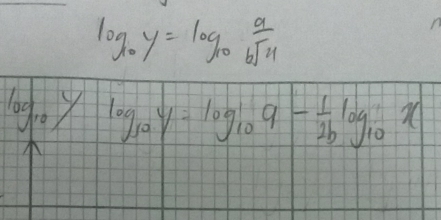 log₁₀ y = log₁₀ a/b√x
log₁₀ y log₁₀ y = log₁₀ a - 1/2b log₁₀ x